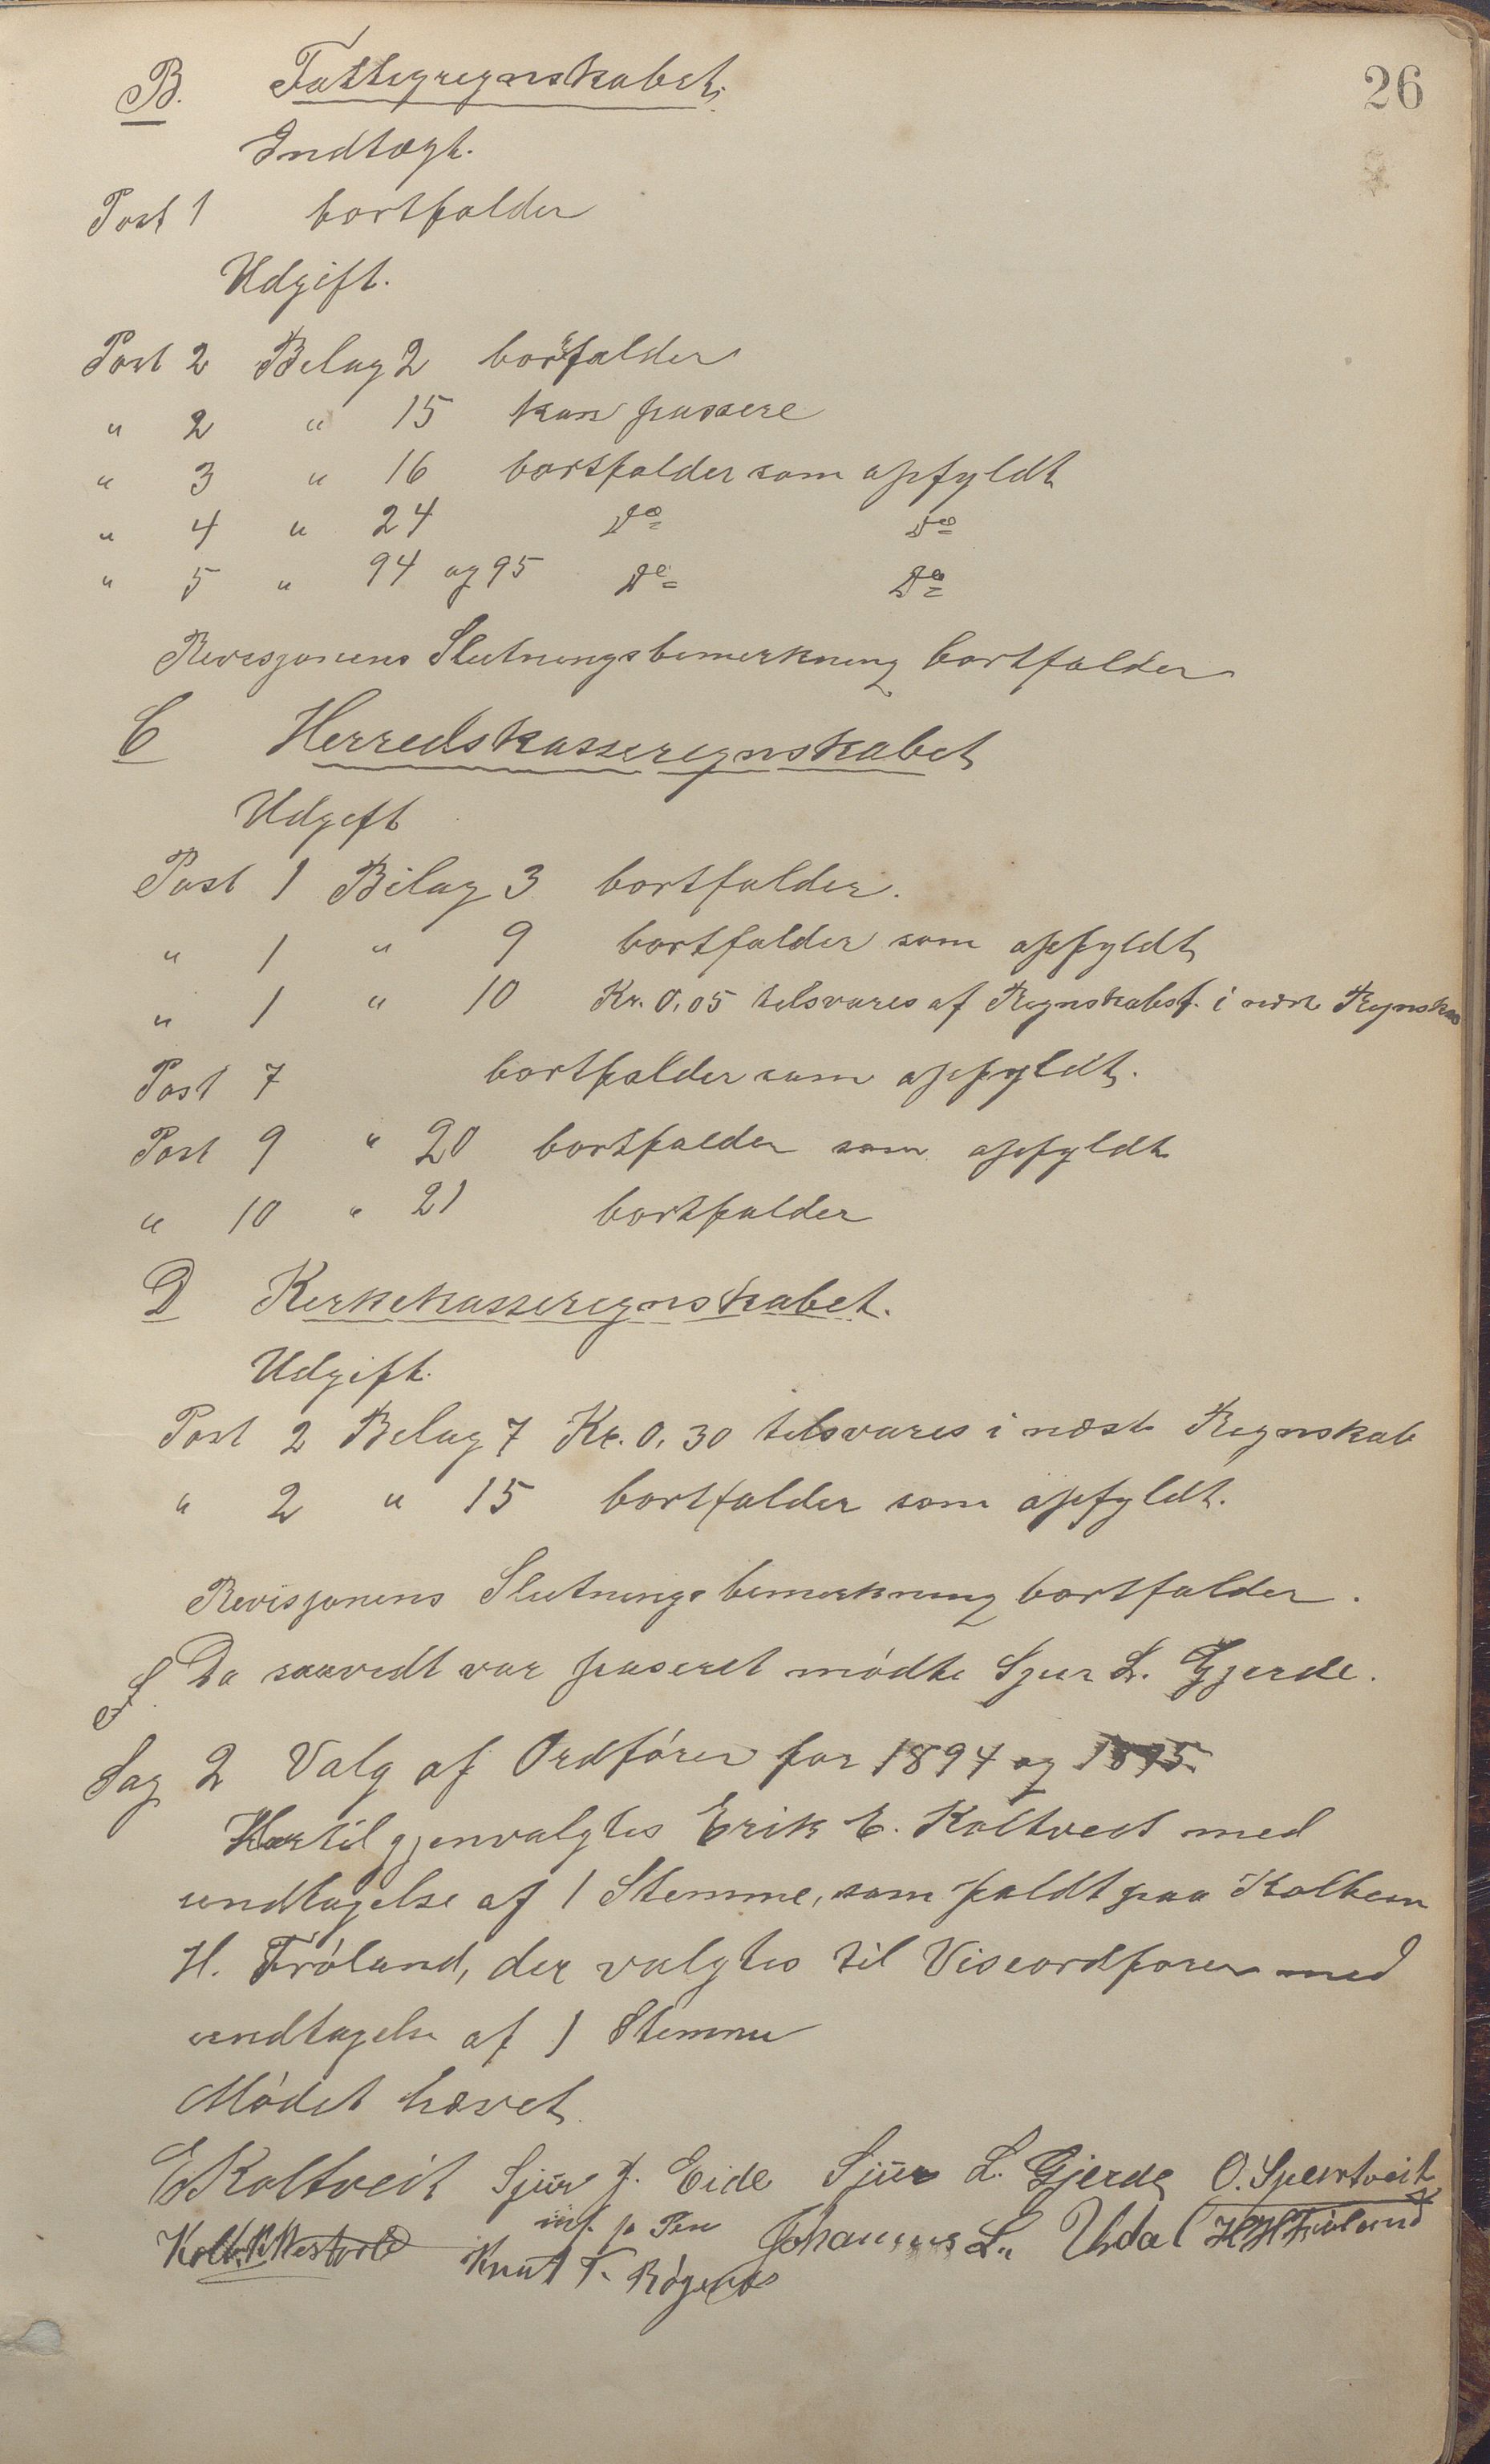 26
B. Fattigregnskabet.
Indtægt.
Post 1 bortfalder
Udgift.
Post 2 Bilag 2 bortfalder
" 2 " 15 kan passere
" 3 " 16 bortfalder som opfyldt
" 4 " 24 Do Do
" 5 " 94 og 95 Do Do
Revisjonens Slutningsbemerkning bortfalder
C Herredskasseregnskabet
Udgift
Post 1 Bilag 3 bortfalder.
" 1 " 9 bortfalder som opfyldt
" 1 " 10 Kr. 0,05 tilsvares af Regnskabsf. i næste Regnskab
Post 7 bortfalder som opfyldt.
Post 9 " 20 bortfalder som opfyldt
" 10 " 21 bortfalder
D Kirkekasseregnskabet.
Udgift.
Post 2 Bilag 7 Kr. 0,30 tilsvares i næste Regnskab
" 2 " 15 bortfalder som opfyldt.
Revisjonens Slutningsbemerkning bortfalder.
Da saavidt var passeret mødte Sjur L. Gjerde.
Sag 2 Valg af Ordfører for 1894 og 1895.
Hertil gjenvalgtes Erik E. Koltveit med
undtagelse af 1 Stemme, som faldt paa Kolbein
H. Frøland, der valgtes til Viseordfører med
undtagelse af 1 Stemme
Mødet hævet
E Koltveit Sjur J. Eide Sjur L. Gjerde O. Spertveit
m. f. p. Pen
Knut T. Røgenes Johannes L. Udal H H Frøland